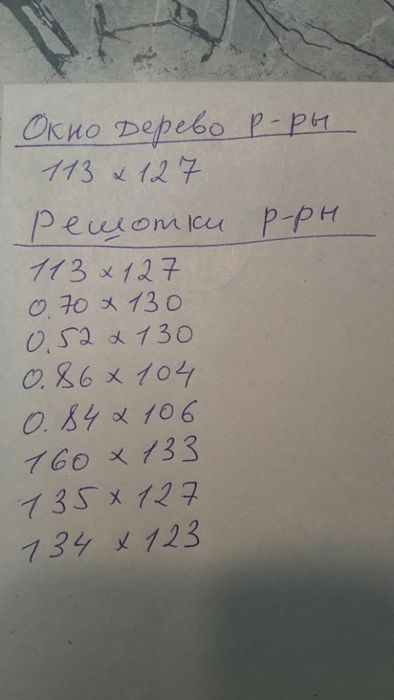 Окно дерево р-ры
113 х 127
Решотки р-ры
113 х 127
0.70 х 130
0.52 х 130
0.86 х 104
0.84 х 106
160 х 133
135 х 127
134 х 123